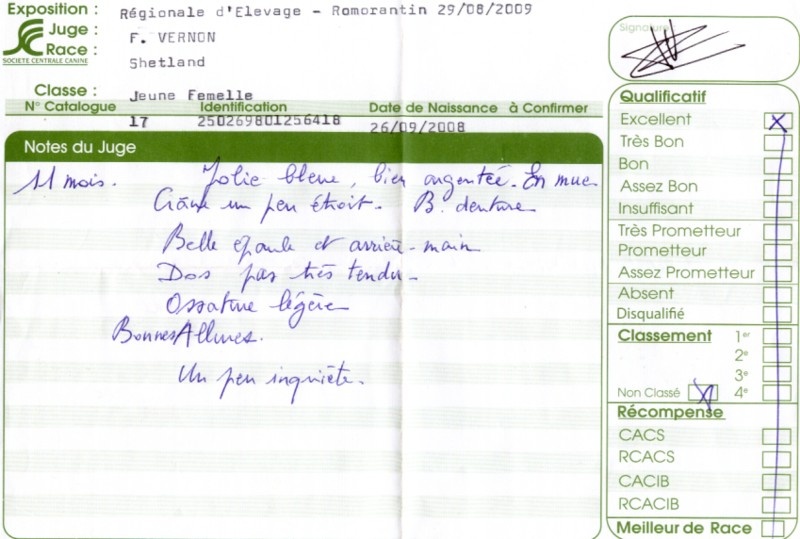 Exposition : Régionale d'Elevage - Romorantin 29/08/2009
Juge : F. VERNON
Race : Shetland
SOCIETE CENTRALE CANINE
Classe : Jeune Femelle
N° Catalogue Identification Date de Naissance à Confirmer
17 250269801256418 26/09/2008
Notes du Juge
11 mois. Jolie bleue, bien argentée. En mue
Crâne un peu étroit. B. denture
Belle epaule et arrière-main
Dos pas très tendu.
Ossature légère
Bonnes Allures.
Un peu inquiète.
Signature
Qualificatif
Excellent X
Très Bon
Bon
Assez Bon
Insuffisant
Très Prometteur
Prometteur
Assez Prometteur
Absent
Disqualifié
Classement 1er
2e
3e
Non Classé X 4e
Récompense
CACS
RCACS
CACIB
RCACIB
Meilleur de Race